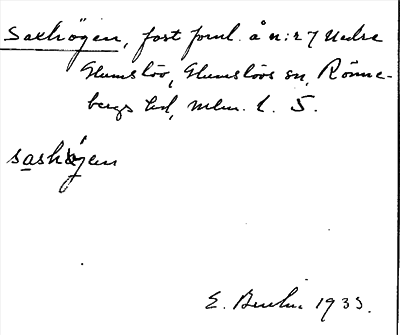 Saxhögen, fast fornl. å n:r 7 Nedre
Glumslöv, Glumslövs sn, Rönne-
bergs hd, Mlm. l. S.
sashøjen
E. 1933.